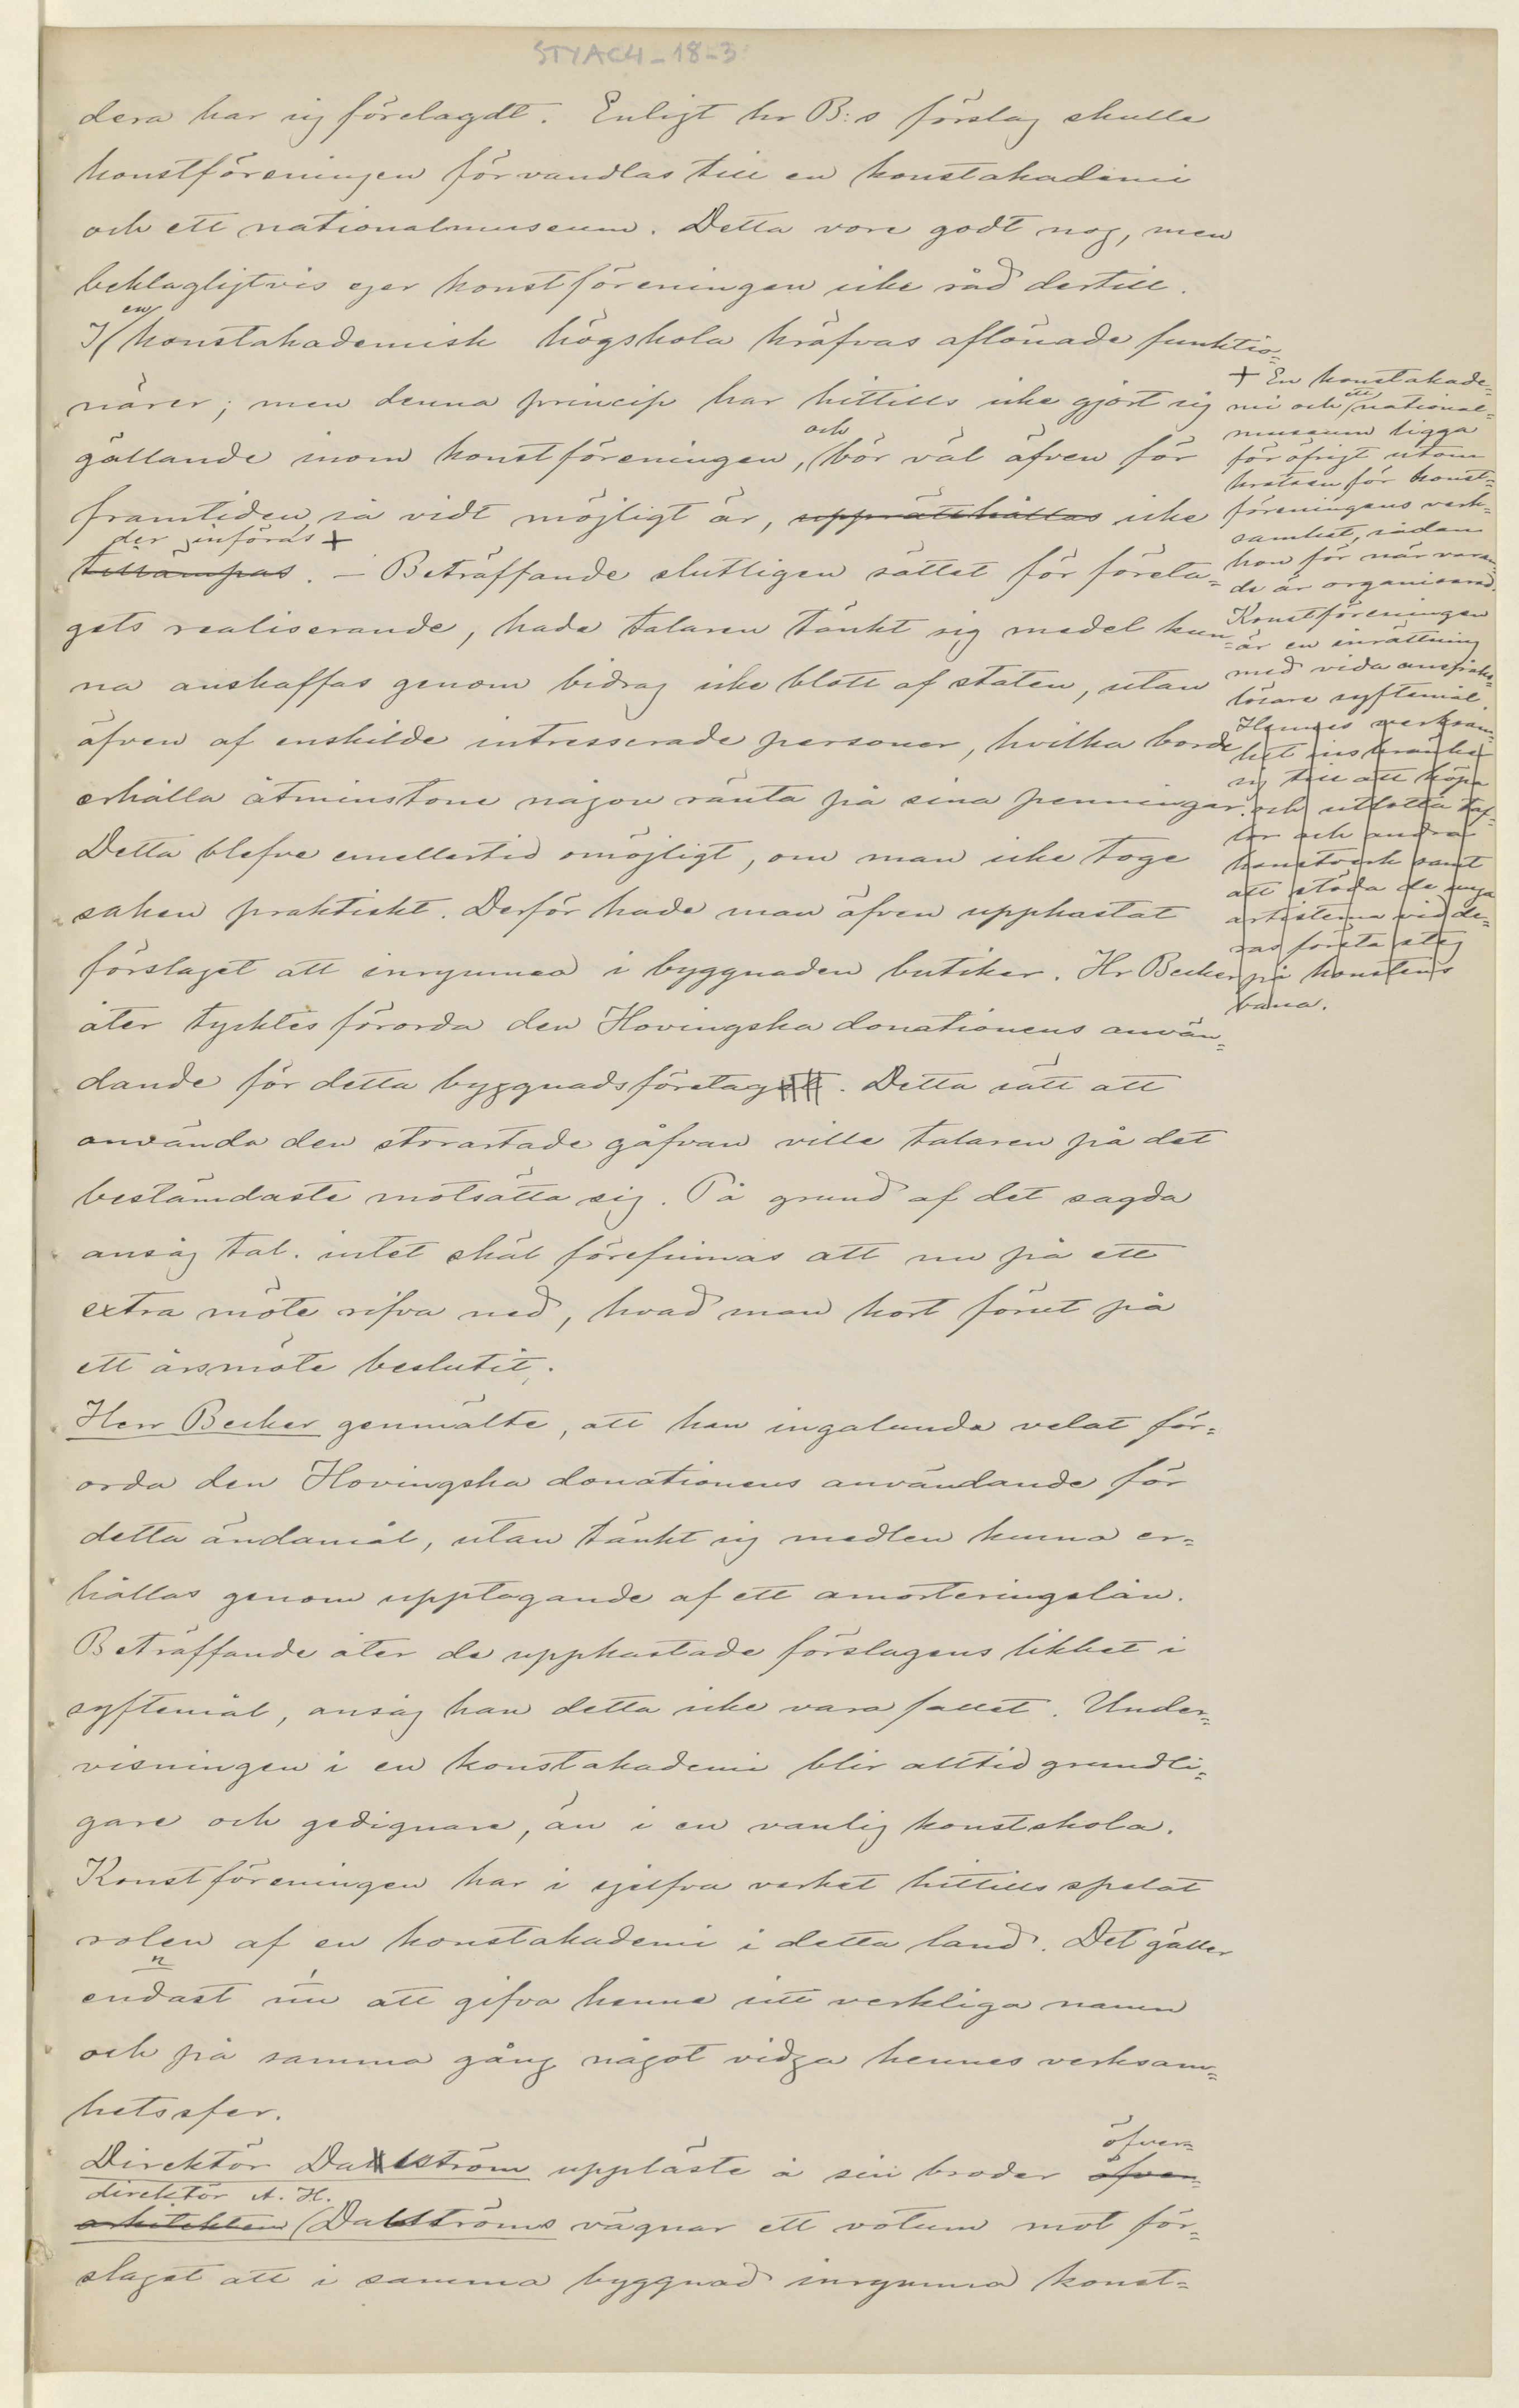 STYAC4-18-3
dera har sig förelagdt. Enligt hr B:s förslag skulle
konstföreningen förvandlas till en konstakademi
och ett nationalmuseum. Detta vore godt nog, men
beklagligtvis eger konstföreningen icke råd dertill.
en
I konstakademisk högskola kräfvas aflönade funktio-
närer; men denna princip har hittills icke gjort sig
och
gällande inom konstföreningen, bör väl äfven för
framtiden, så vidt möjligt är, upprätthållas icke
der införas +
tillämpas. – Beträffande slutligen sättet för företa-
gets realiserande, hade talaren tänkt sig medel kun-
na anskaffas genom bidrag icke blott af staten, utan
äfven af enskilde intresserade personer, hvilka borde
erhålla åtminstone någon ränta på sina penningar.
Detta blefve emellertid omöjligt, om man icke toge
saken praktiskt. Derför hade man äfven uppkastat
förslaget att inrymma i byggnaden butiker. Hr Becker
åter tycktes förorda den Hovingska donationens använ-
dande för detta byggnadsföretag. Detta sätt att
använda den storartade gåfvan ville talaren på det
bestämdaste motsätta sig. På grund af det sagda
ansåg tal. intet skäl förefinnas att nu på ett
extra möte rifva ned, hvad man kort förut på
ett årsmöte beslutit.
+ En konstakade-
mi och ett national-
museum ligga
för öfrigt utom
kretsen för konst-
föreningens verk-
samhet, sådan
hon för närvaran-
de är organiserad.
Konstföreningen
är en inrättning
med vida anspråks-
lösare syftemål.
Hennes verksam-
het inskränker
sig till att köpa
och utlotta taf-
lor och andra
konstverk samt
att stöda de unga
artisterna vid de-
ras första steg
på konstens
bana.
Herr Becker genmälte, att han ingalunda velat för-
orda den Hovingska donationens användande för
detta ändamål, utan tänkt sig medlen kunna er-
hållas genom upptagande af ett amorteringslån.
Beträffande åter de uppkastade förslagens likhet i
syftemål, ansåg han detta icke vara fallet. Under-
visningen i en konstakademi blir alltid grundli-
gare och gedignare, än i en vanlig konstskola.
Konstföreningen har i sjelfva verket hittills spelat
rolen af en konstakademi i detta land. Det gäller
n
endast nu att gifva henne sitt verkliga namn
och på samma gång något vidga hennes verksam-
hetssfer.
öfver-
Direktör Dahlström uppläste å sin broder öfver-
direktör A. H.
arkitekten Dahlströms vägnar ett votum mot för-
slaget att i samma byggnad inrymma konst-